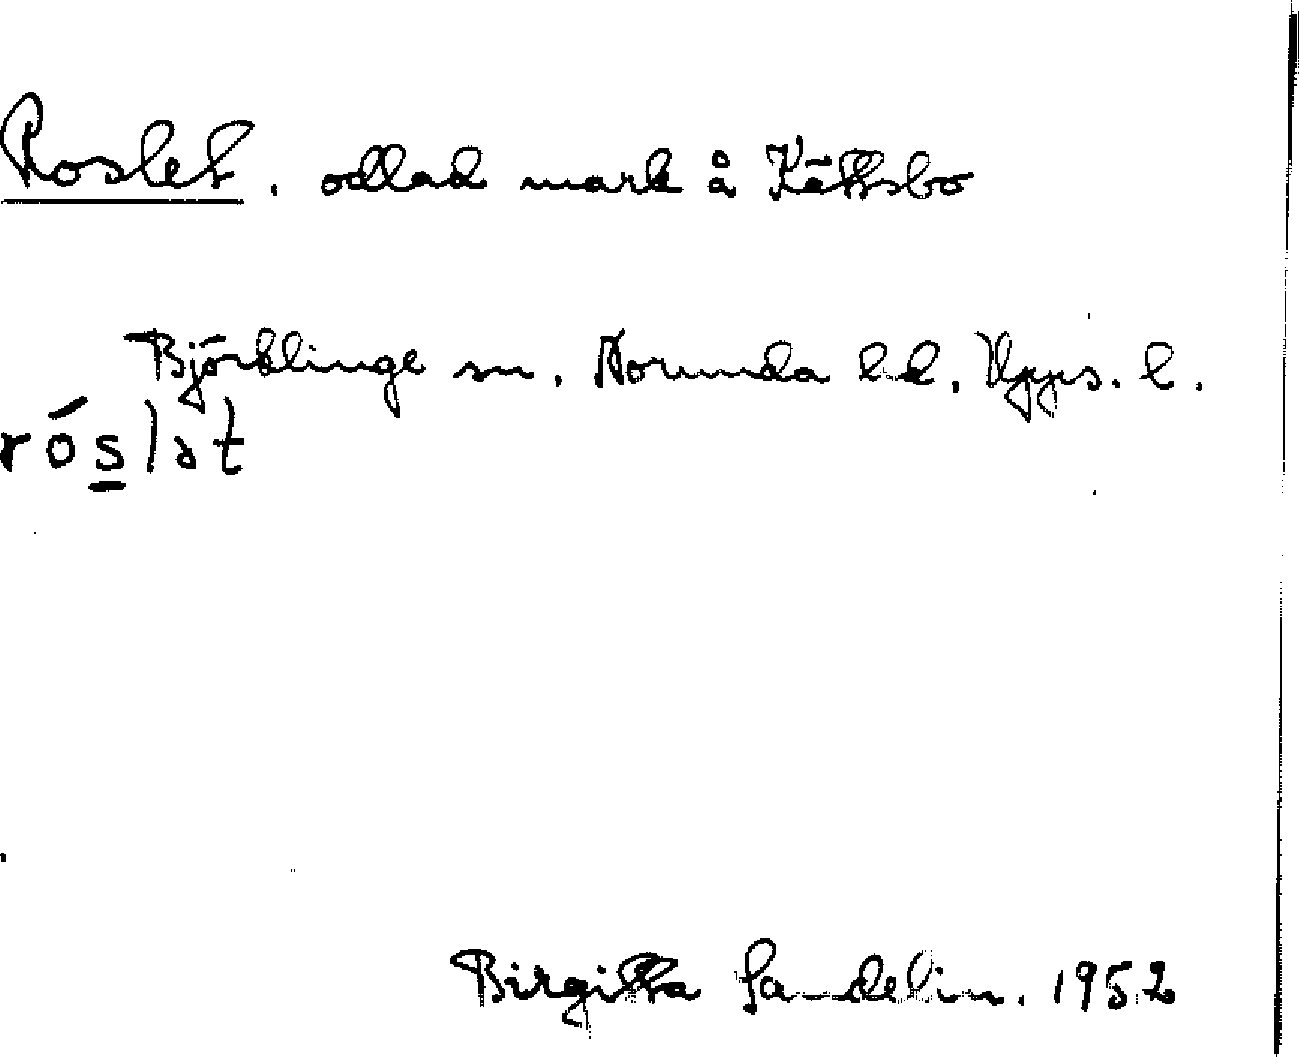 Roslet, odlad mark å Kättsbo
Björklinge sn. Norunda hd. Upps. l.
róslət
Birgitta Sandelin. 1952